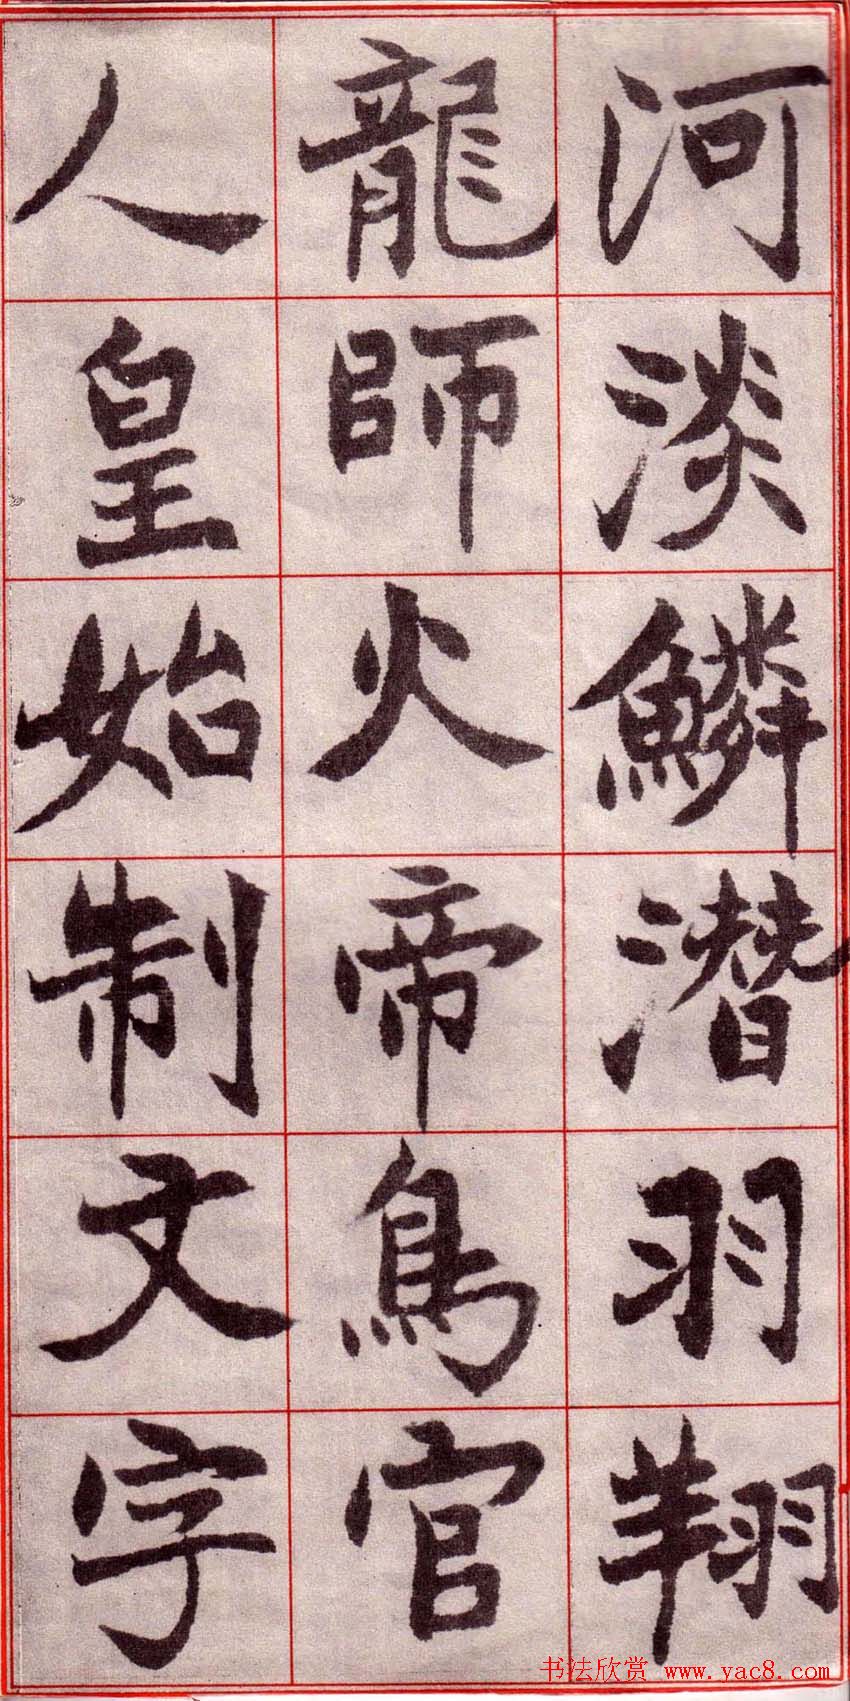 河淡鱗潛羽翔
龍師火帝鳥官
人皇始制文字
书法欣赏 www.yac8.com